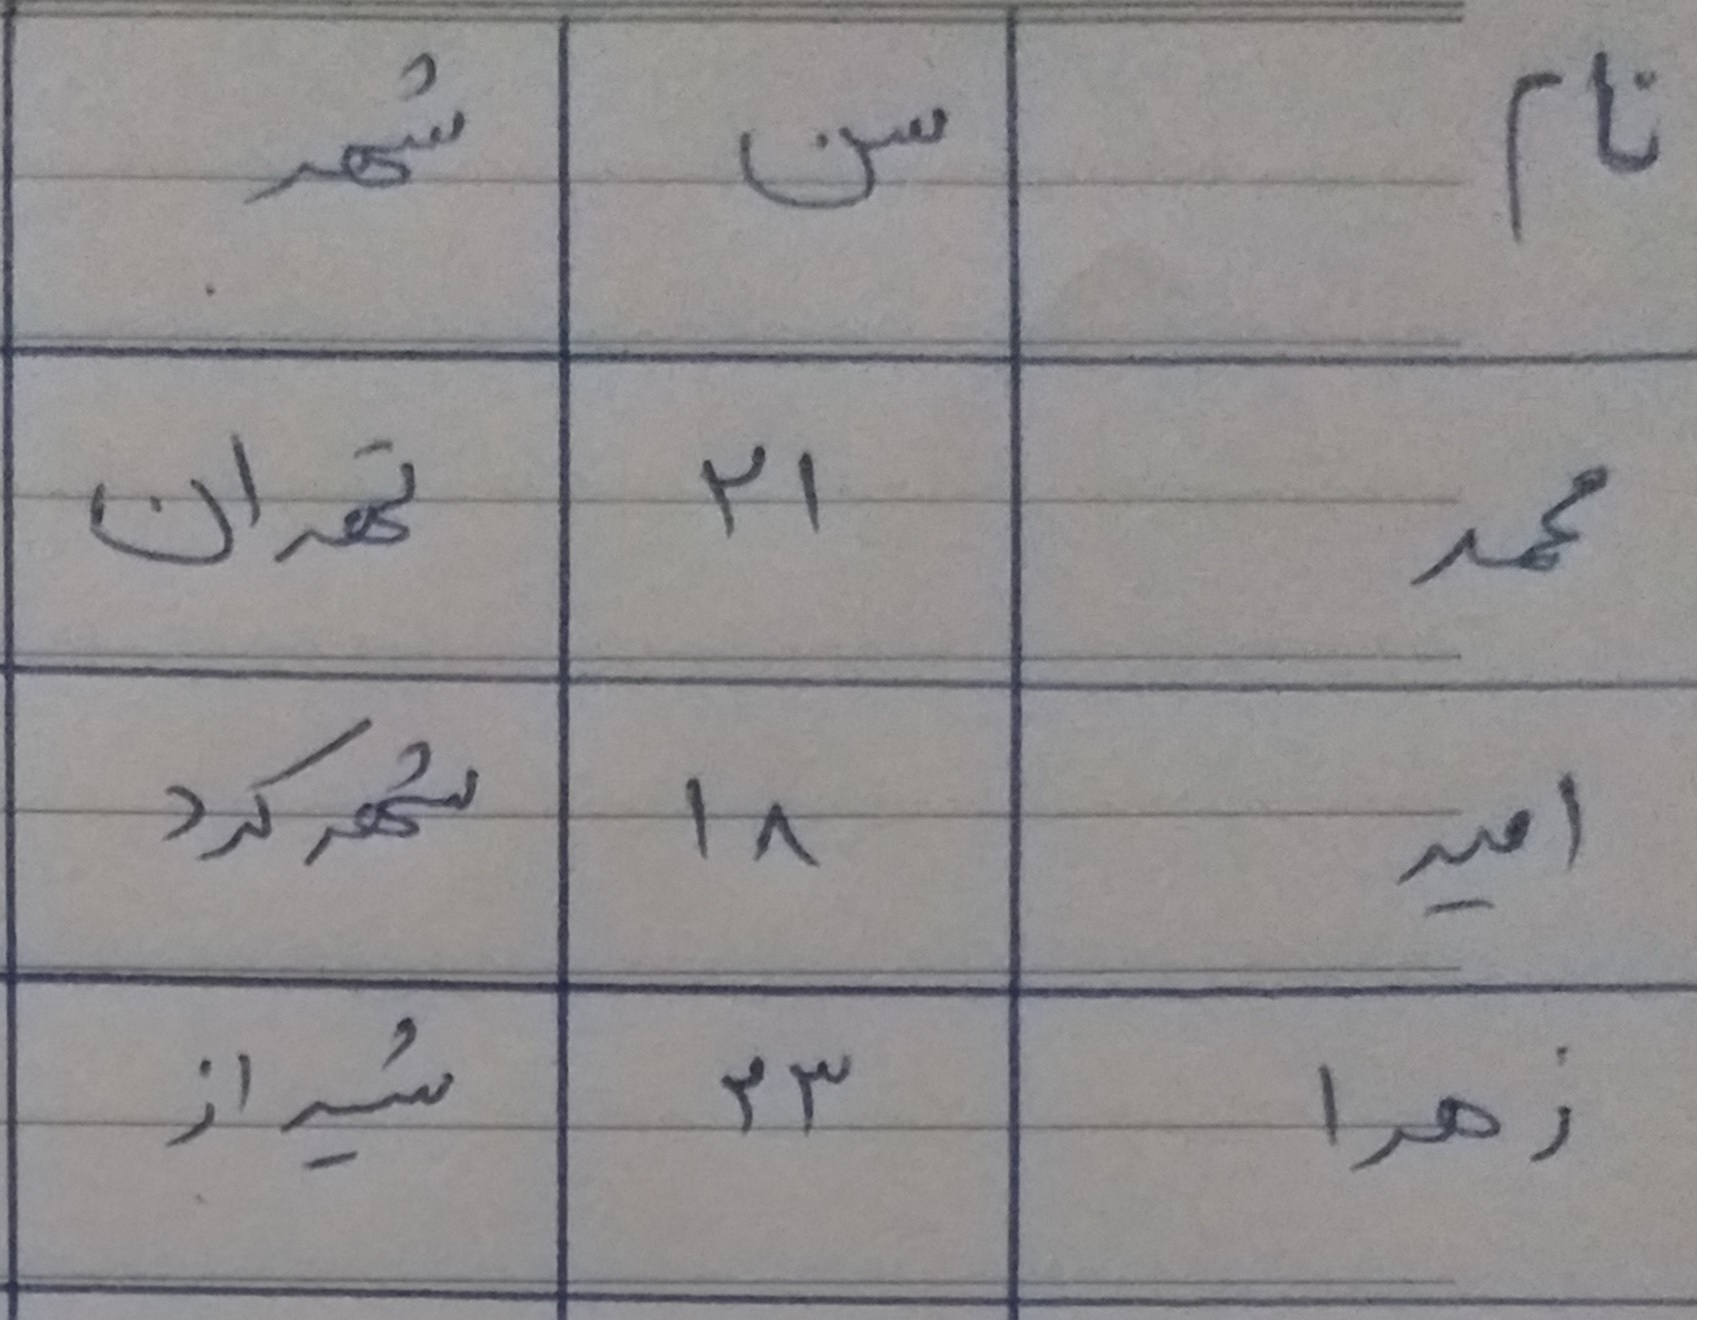 نام سن شهر
محمد ۲۱ تهران
امیر ۱۸ شهرکرد
زهرا ۲۳ شیراز